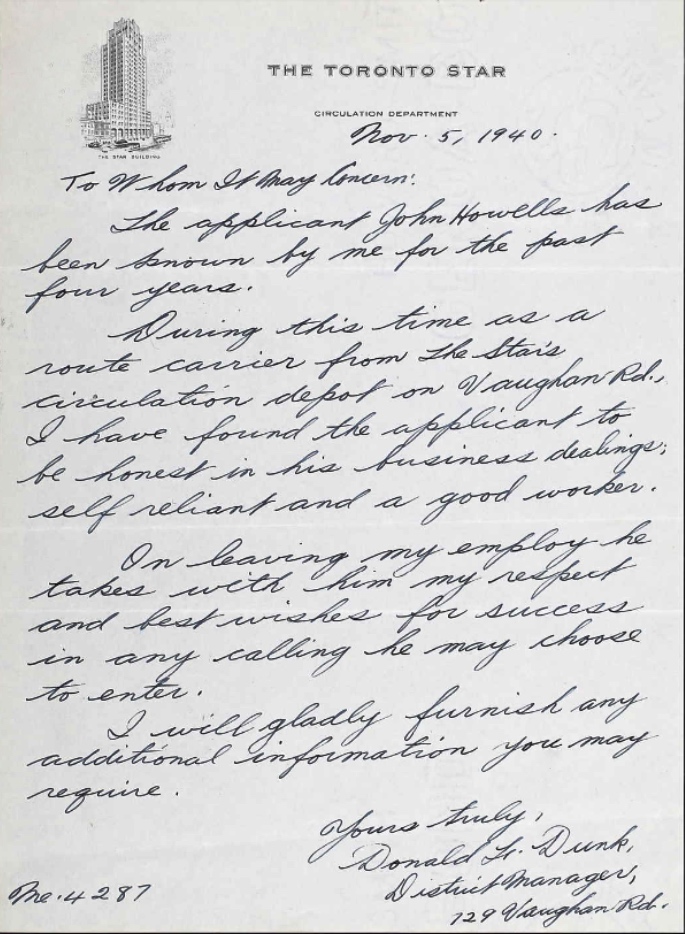 THE TORONTO STAR
CIRCULATION DEPARTMENT
THE STAR BUILDING
Nov. 5, 1940.
To Whom It May Concern:
The applicant John Howells has
been known by me for the past
four years.
During this time as a
route carrier from The Star's
circulation depot on Vaughan Rd.,
I have found the applicant to
be honest in his business dealings;
self reliant and a good worker.
On leaving my employ he
takes with him my respect
and best wishes for success
in any calling he may choose
to enter.
I will gladly furnish any
additional information you may
require.
Yours truly,
Donald Dunk,
District Manager,
129 Vaughan Rd.
Me. 4287